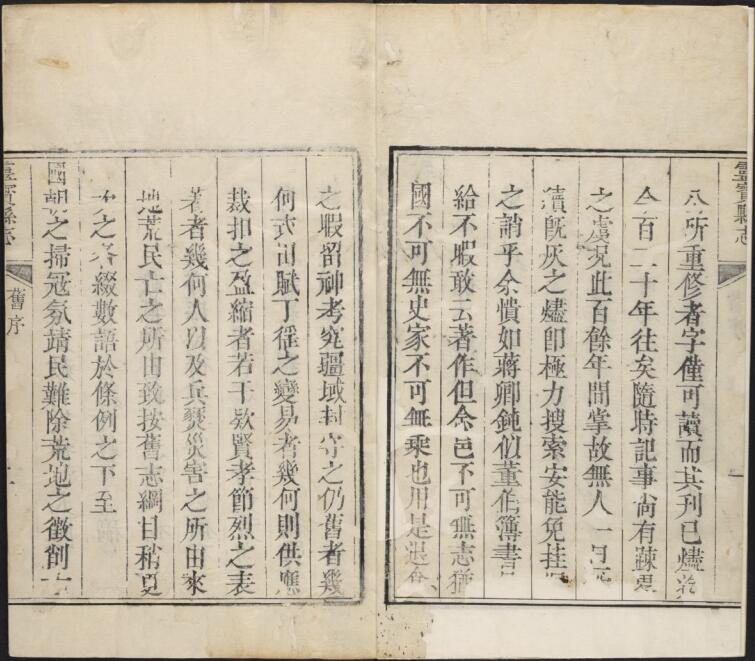 靈寶縣志
所重修者字僅可讀而其刊已燼於
今百二十年往矣隨時記事尚有疎畧
之處况此百餘年間掌故無人一旦
續既灰之燼即極力搜索安能免挂
之誚乎余憒如蔣卿鈍似董伯簿書
給不暇敢云著作但念邑不可無志猶
國不可無史家不可無乘也用是退食
之暇留神考究疆域封守之仍舊者幾
何式田賦丁徭之變易者幾何則供應
裁扣之盈縮者若干欵賢孝節烈之表
著者幾何人以及兵燹災害之所由來
地荒民亡之所由致按舊志綱目稍更
次之各綴數語於條例之下至
國朝之掃寇氛靖民難除荒地之徵創
靈寶縣志
舊序